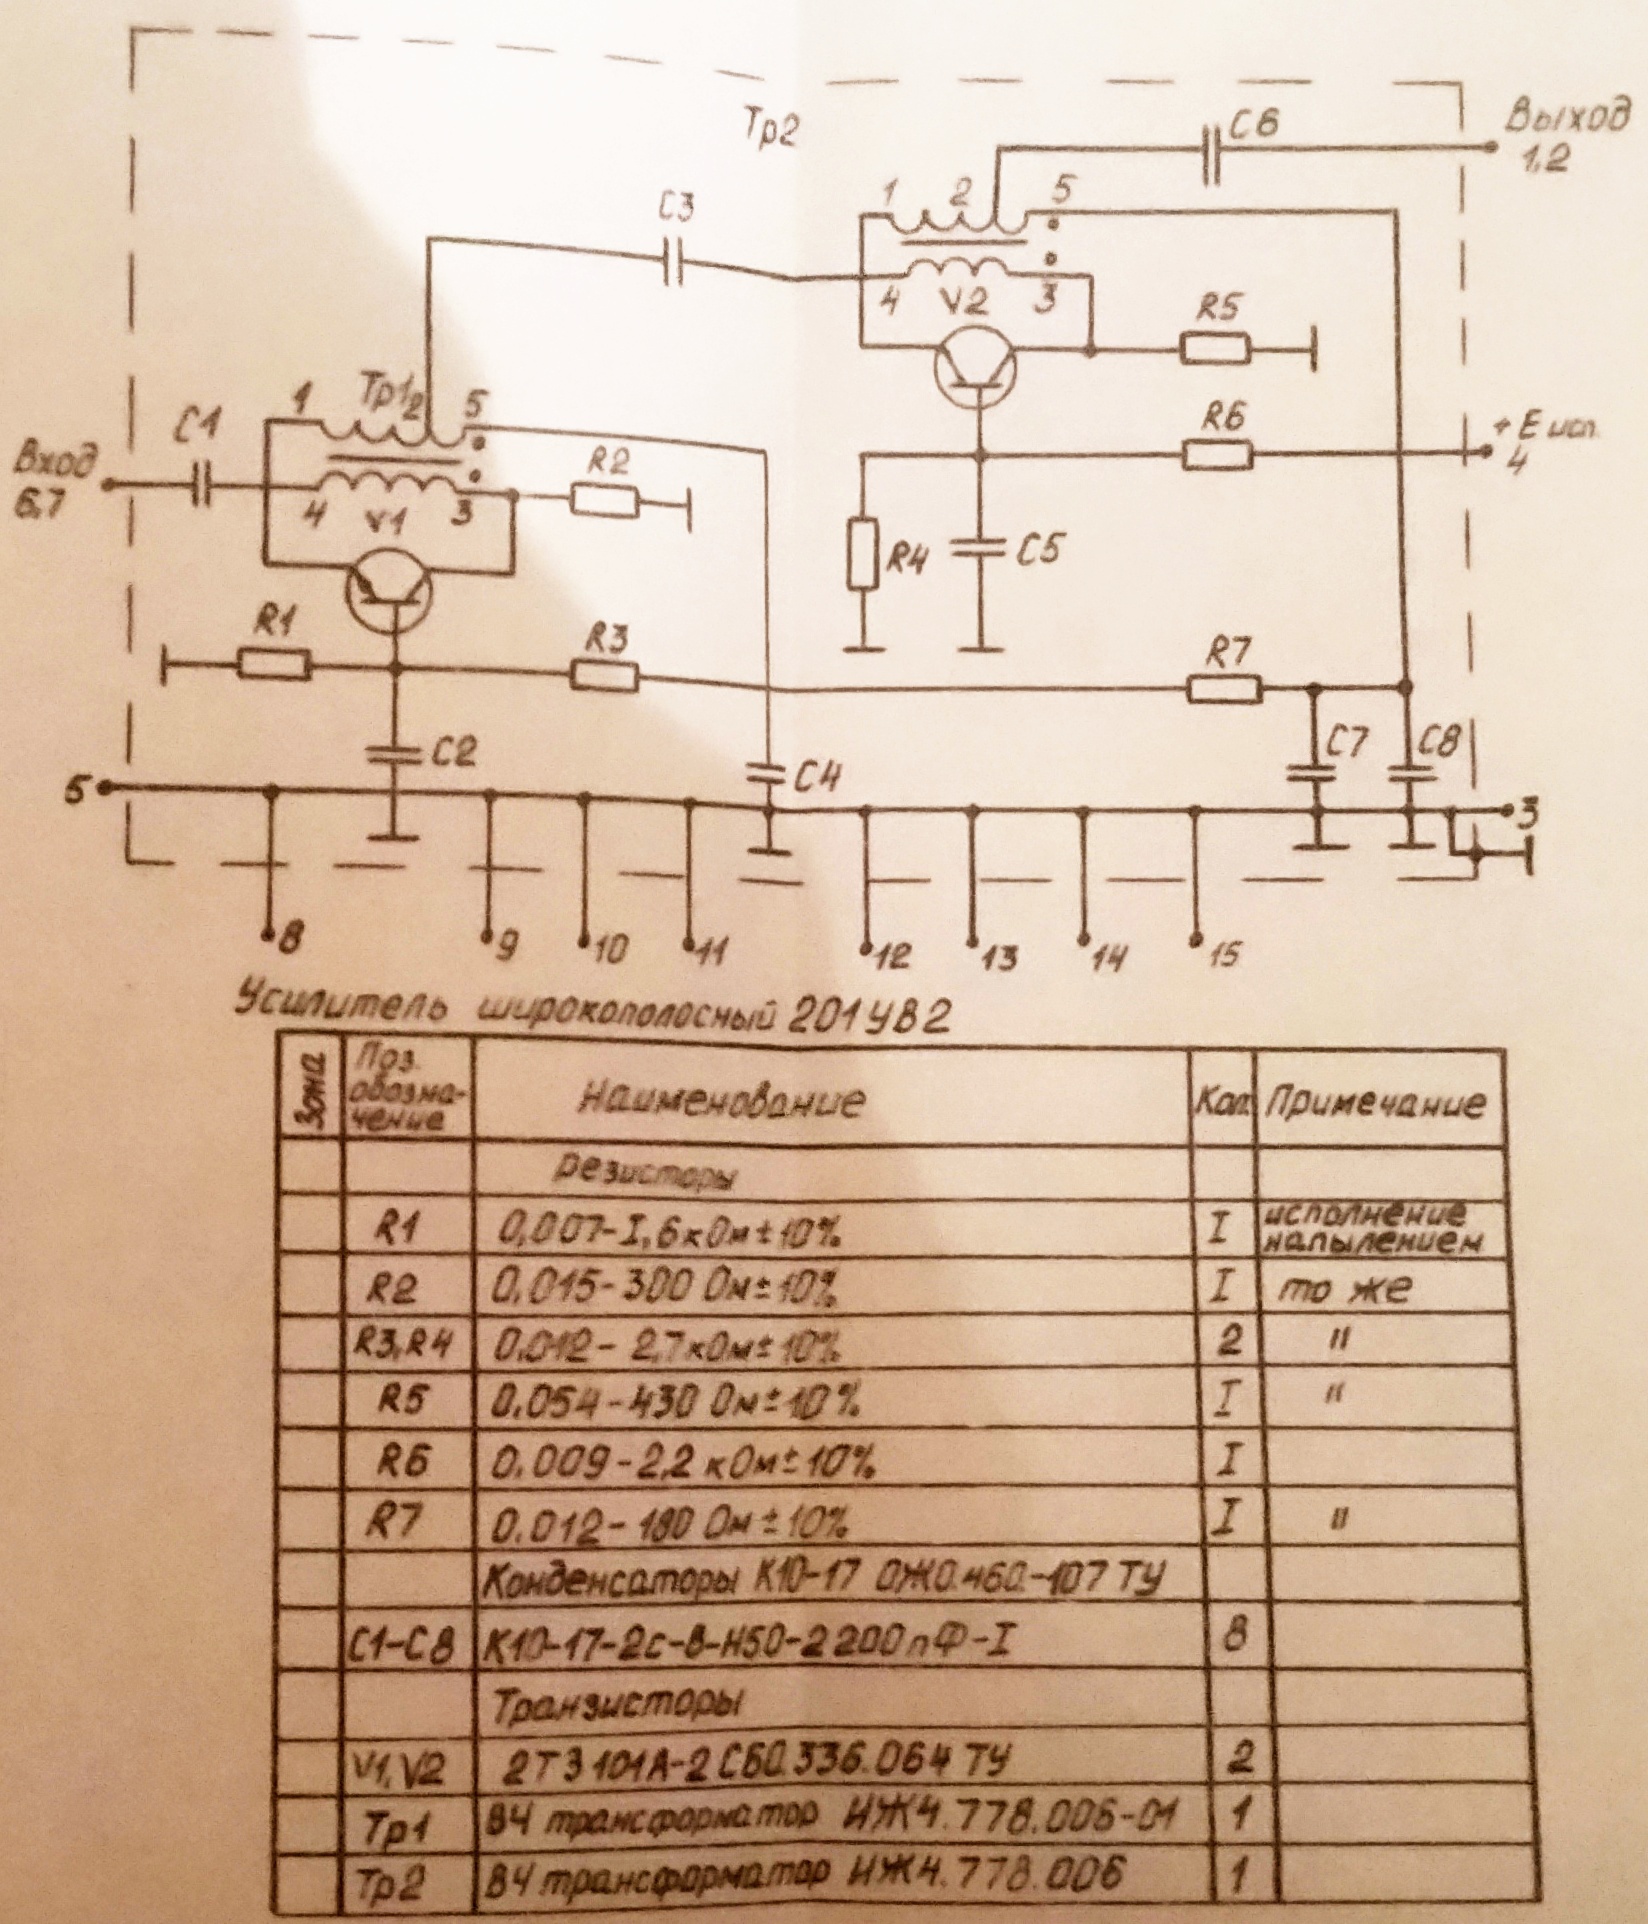 Тр2
С6
Выход
1,2
1 2 5
С3
4 V2 3
R5
Тр1
1 2 5
С1
R6
+ Е исп.
4
Вход
6,7
R2
4 V1 3
R4
С5
R1
R3
R7
С2
С4
С7
С8
5
3
8 9 10 11 12 13 14 15
Усилитель широкополосный 201УВ2
Зона
Поз. обозна-
чение
Наименование
Кол.
Примечание
Резисторы
R1 0,007-I,6кОм±10% I исполнение
напылением
R2 0,015-300 Ом±10% I то же
R3,R4 0.012-2,7кОм±10% 2 "
R5 0.054-430 Ом±10% I "
R6 0.009-2,2 кОм±10% I
R7 0.012-180 Ом±10% I "
Конденсаторы К10-17 ОЖ0.460.-107 ТУ
С1-С8 К10-17-2с-в-Н50-2200пФ-I 8
Транзисторы
V1,V2 2Т3101А-2 Сб0.336.064 ТУ 2
Тр1 ВЧ трансформатор ИЖ4.778.006-01 1
Тр2 ВЧ трансформатор ИЖ4.778.006 1